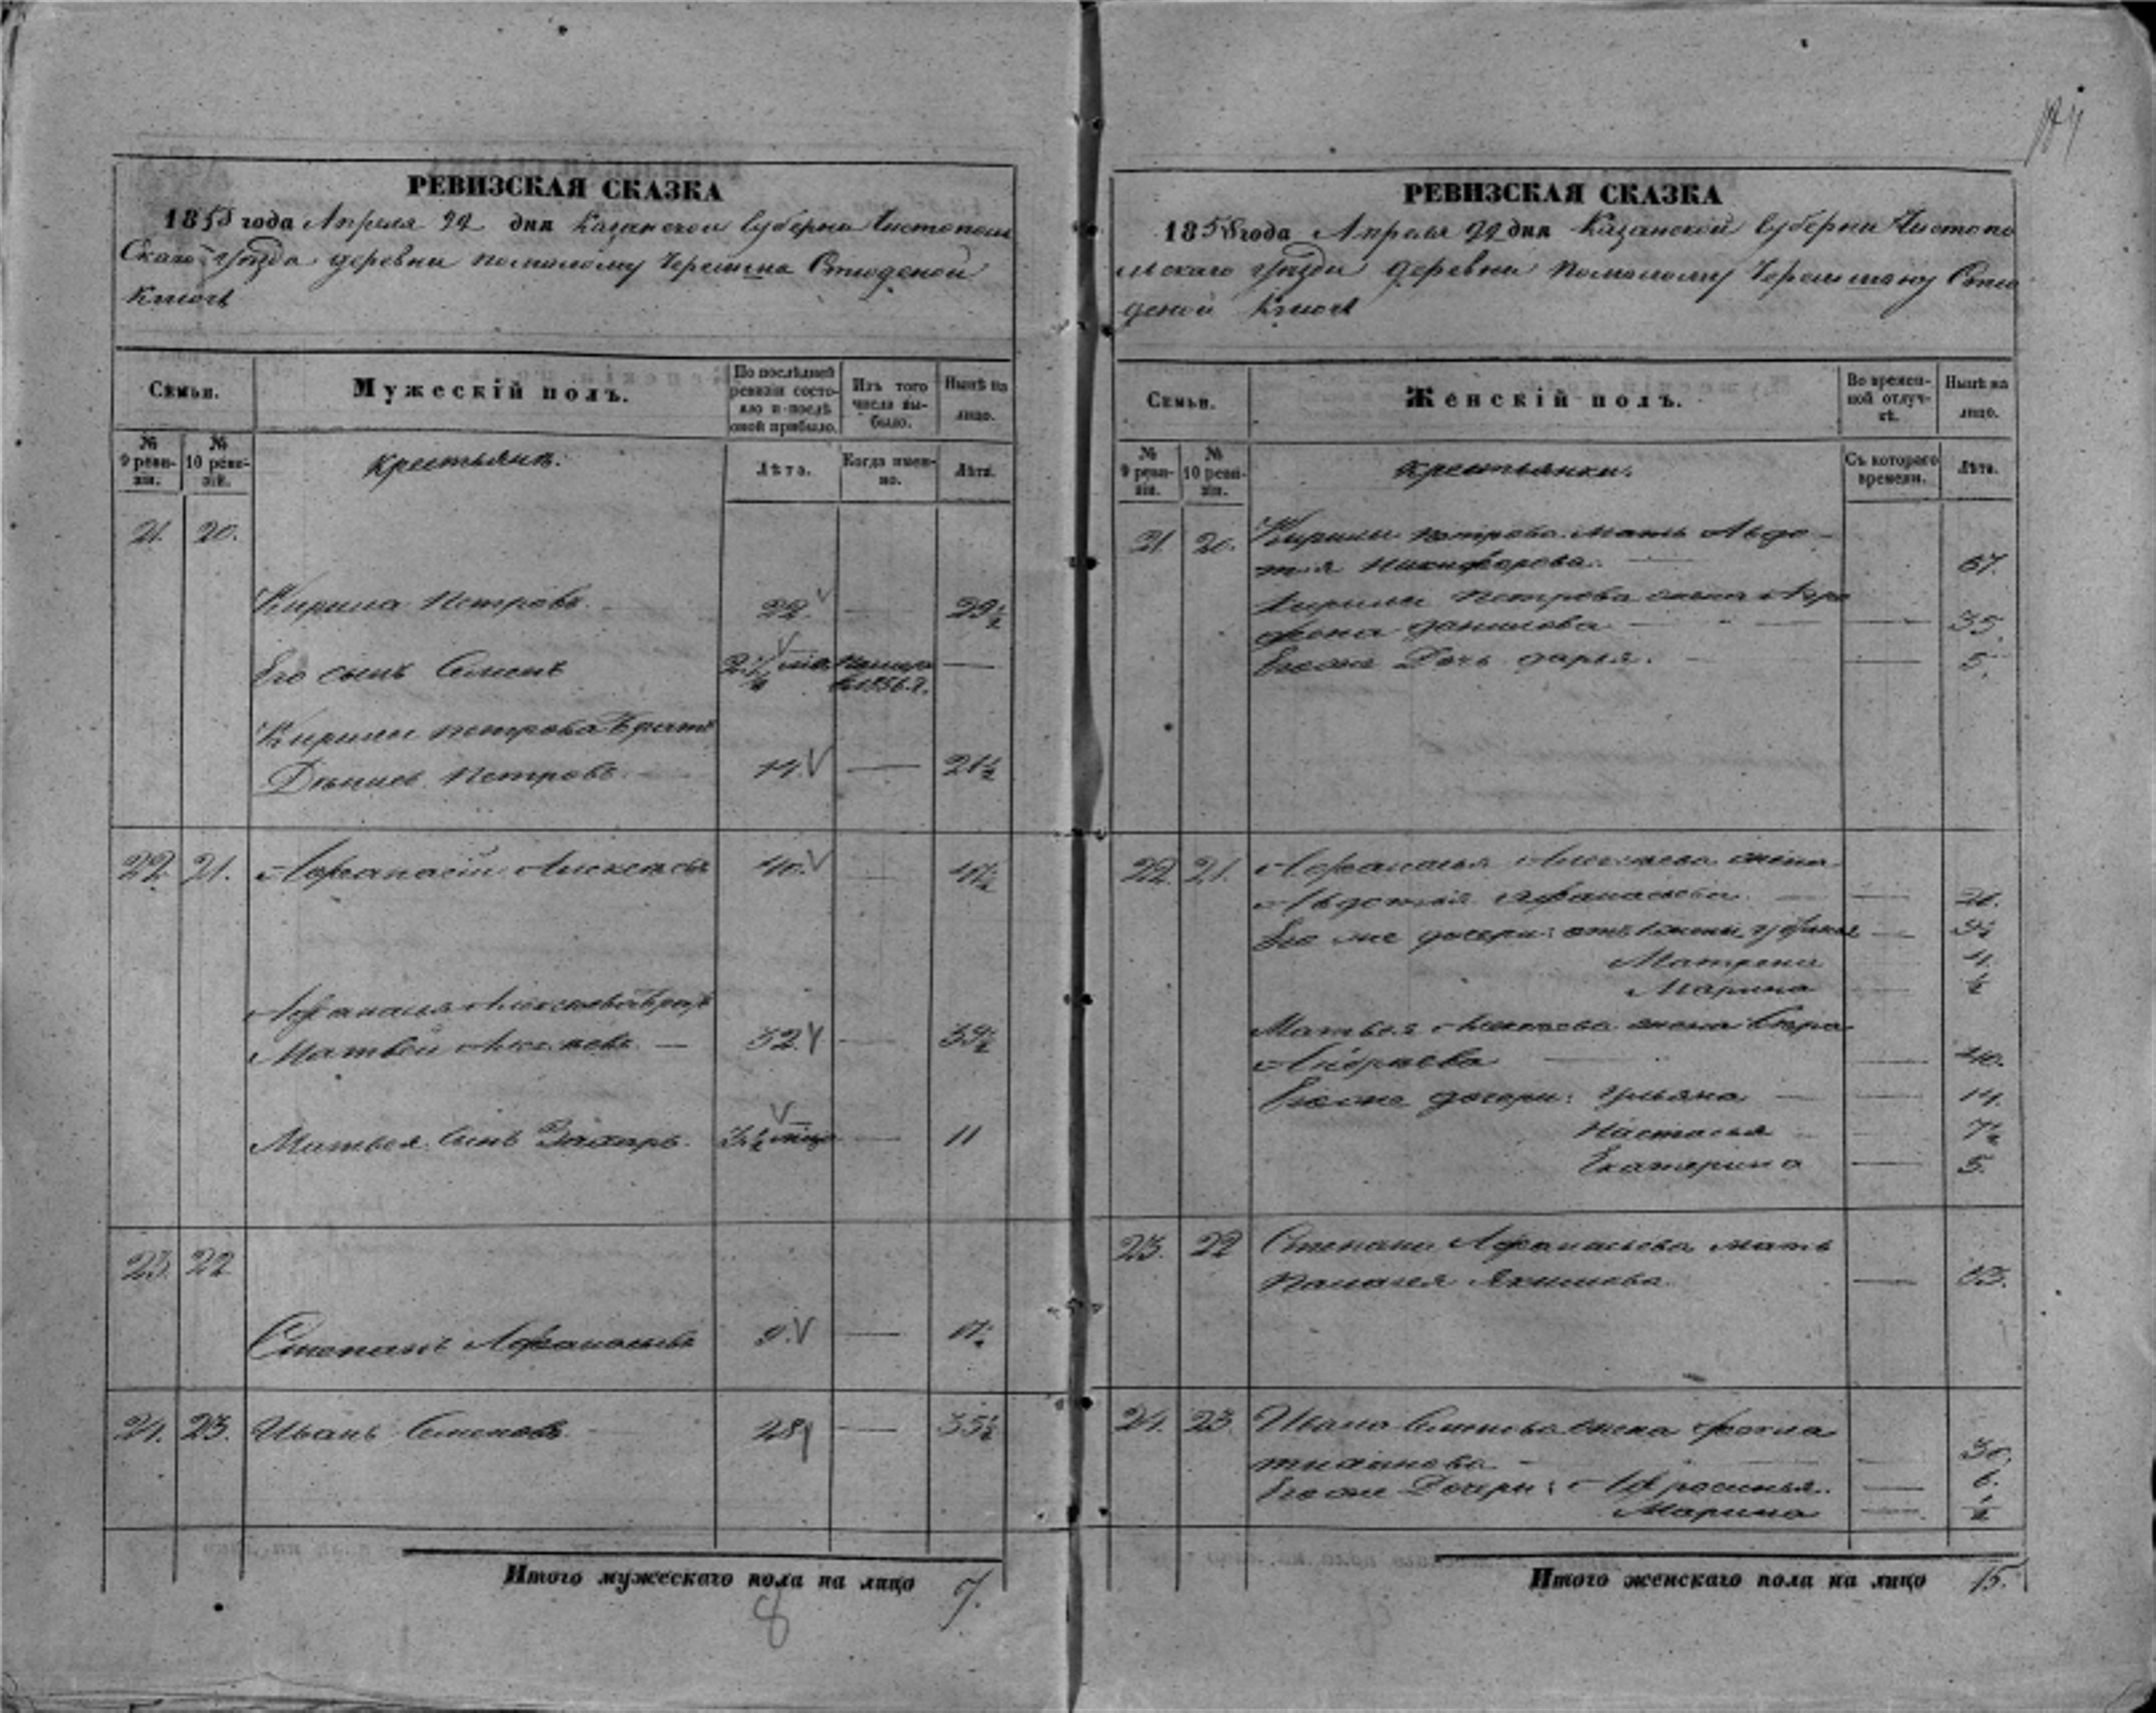 184
РЕВИЗСКАЯ СКАЗКА
1858 года Апреля 22 дня Казанской Губернии Чистополь
Скаго уѣзда деревни помалому Черемшана Студеной
Ключь
Семьи.
Мужескій полъ.
По послѣдней ревизіи состояло и послѣ оной прибыло.
Изъ того числа выбыло.
Нынѣ на лицо.
№ 9 ревизіи.
№ 10 ревизіи.
крестьянъ.
Лѣта.
Когда именно.
Лѣта.
21. 20.
Кирила Петровъ. 22. — 29½
Его сынъ Семенъ помре въ 1856.г. —
Кирилы петрова братъ
Денисъ Петровъ. 14. — 21½
22. 21. Афанасій Алексѣевъ 40. — 47½
Афанасья Алексѣева братъ
Матвѣй Алексѣевъ — 32 — 39½
Матвѣя Сынъ Захаръ. 3½ — 11
23. 22
Степанъ Афанасьевъ 9. — 17
24. 23. Иванъ Семеновъ 28 — 35½
Итого мужескаго пола на лицо 7.
8
РЕВИЗСКАЯ СКАЗКА
1858 года Апреля 22 дня Казанской Губерни Чистопо
льскаго уѣзда деревни помалому Черемшану Сту
деной Ключь
Семьи.
Женскій полъ.
Во временной отлучкѣ.
Нынѣ на лицо.
№ 9 ревизіи.
№ 10 ревизіи.
крестьянки.
Съ котораго времени.
Лѣта.
21 20. Кирилы петрова мать Авдо
тья Никифорова. 67.
Кирилы петрова жена Агра
фена данилова — 35.
Его же Дочь дарья. — 5.
22. 21. Афанасья Алексѣева жена
Авдотья Афанасьева —
Его же дочери: отъ
Матрена — 4.
Марина — ½
Матвѣя Алексѣева жена
Андреева — 40.
Его же дочери: Ульяна — 14.
Настасья 7½
Екатерина — 5.
23. 22 Степана Афанасьева мать
Палагея Якимова — 53.
24. 23. Ивана Семенова жена Фекла
тихонова — 30.
Его же Дочери: Афросинья. — 6.
Марина — ½
Итого женскаго пола на лицо 15.